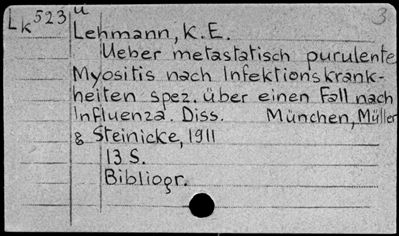 Lk 523 u 3
Lehmann, K.E.
Ueber metastatisch purulente
Myositis nach Infektionskrank-
heiten spez. über einen Fall nach
Influenza. Diss. München, Müller
& Steinicke, 1911
13 S.
Bibliogr.